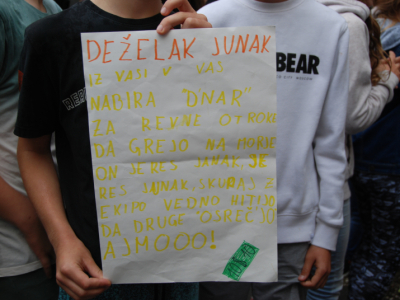 DEŽELAK JUNAK
IZ VASI V VAS
NABIRA "DNAR"
ZA REVNE OTROKE
DA GREJO NA MORJE
ON JE RES JUNAK, JE
RES JUNAK, SKUPAJ Z
EKIPO VEDNO HITIJO
DA DRUGE "OSREČ'JO
AJMOOO!
BEAR